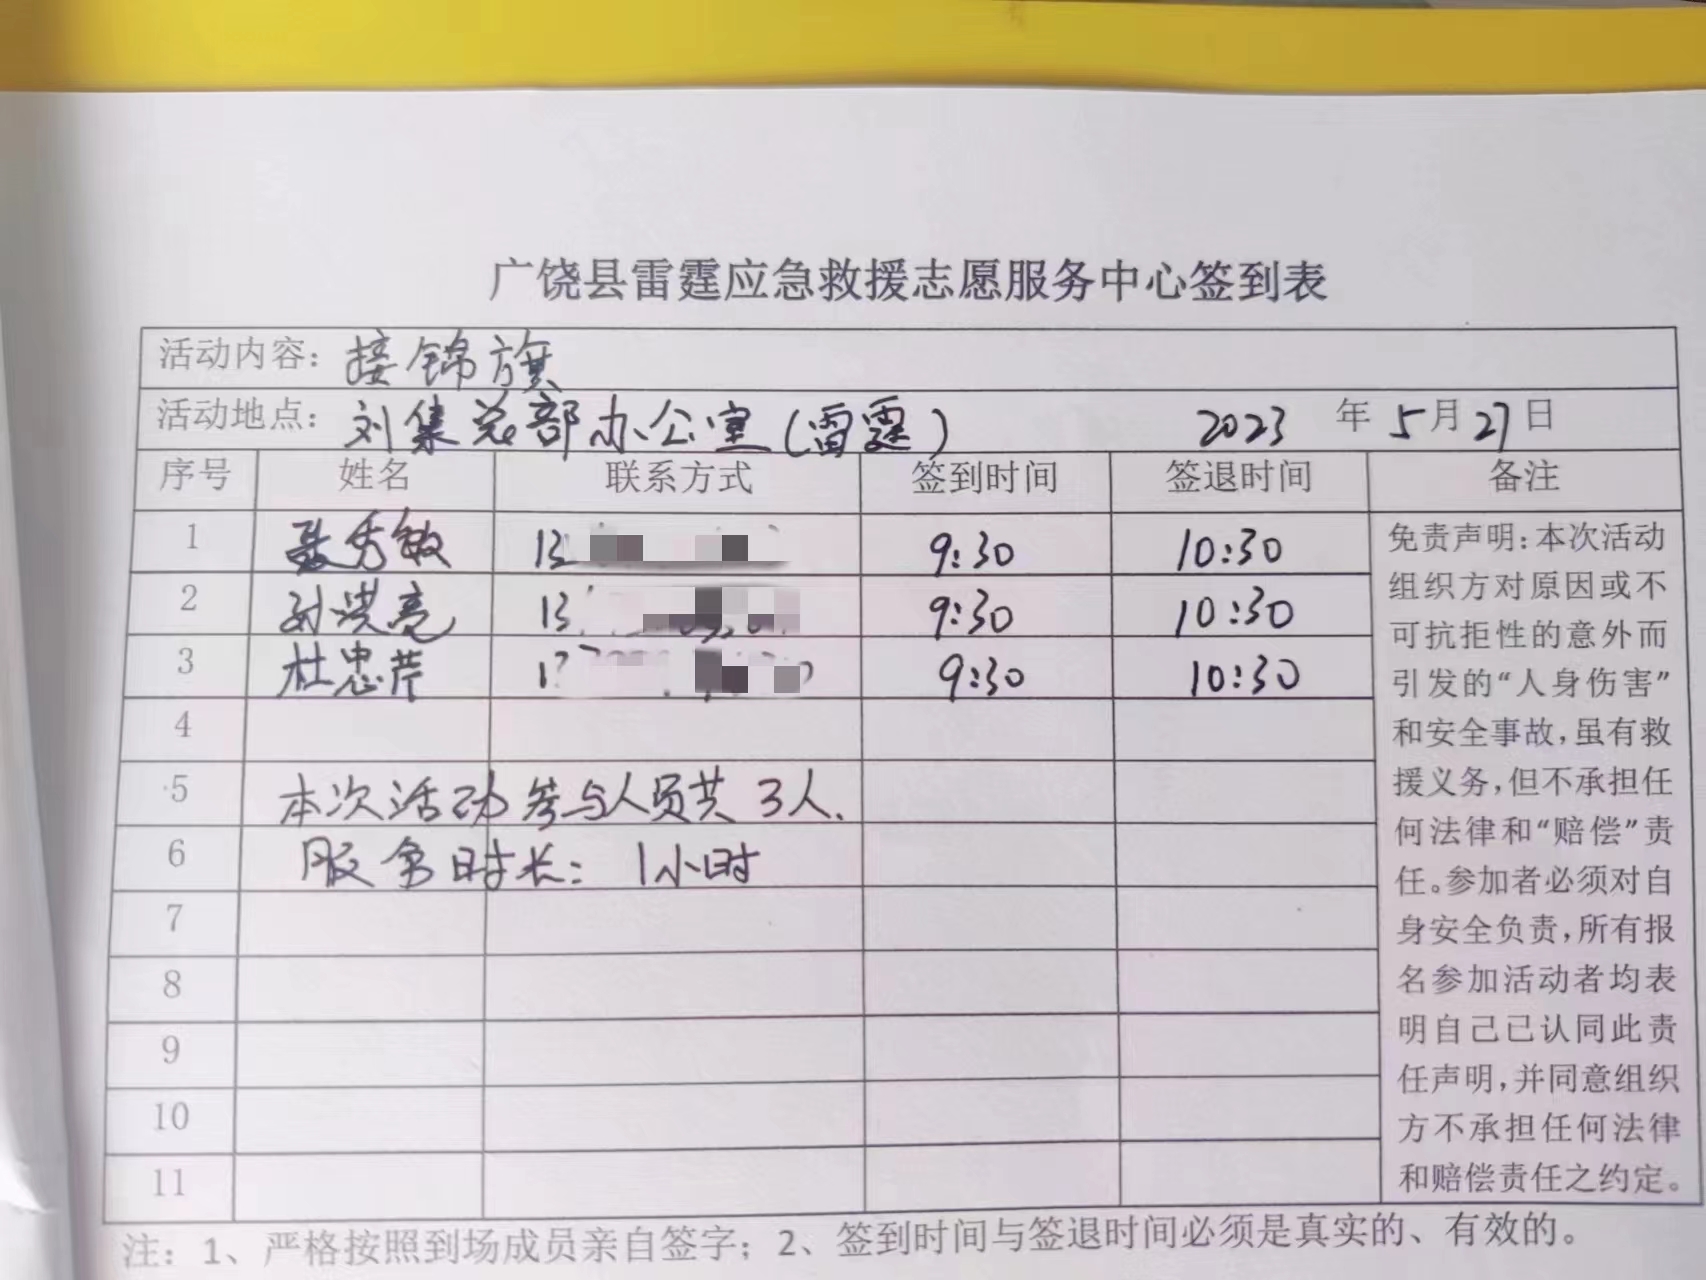 广饶县雷霆应急救援志愿服务中心签到表
活动内容：接锦旗
活动地点：刘集总部办公室（雷霆） 2023 年 5 月 27 日
序号 姓名 联系方式 签到时间 签退时间 备注
1 聂秀敏 13 9:30 10:30
2 刘洪亮 13 9:30 10:30
3 杜忠芹 9:30 10:30
4
5 本次活动参与人员共 3人.
6 服务时长：1小时
7
8
9
10
11
免责声明：本次活动
组织方对原因或不
可抗拒性的意外而
引发的“人身伤害”
和安全事故，虽有救
援义务，但不承担任
何法律和“赔偿”责
任。参加者必须对自
身安全负责，所有报
名参加活动者均表
明自己已认同此责
任声明，并同意组织
方不承担任何法律
和赔偿责任之约定。
注：1、严格按照到场成员亲自签字；2、签到时间与签退时间必须是真实的、有效的。